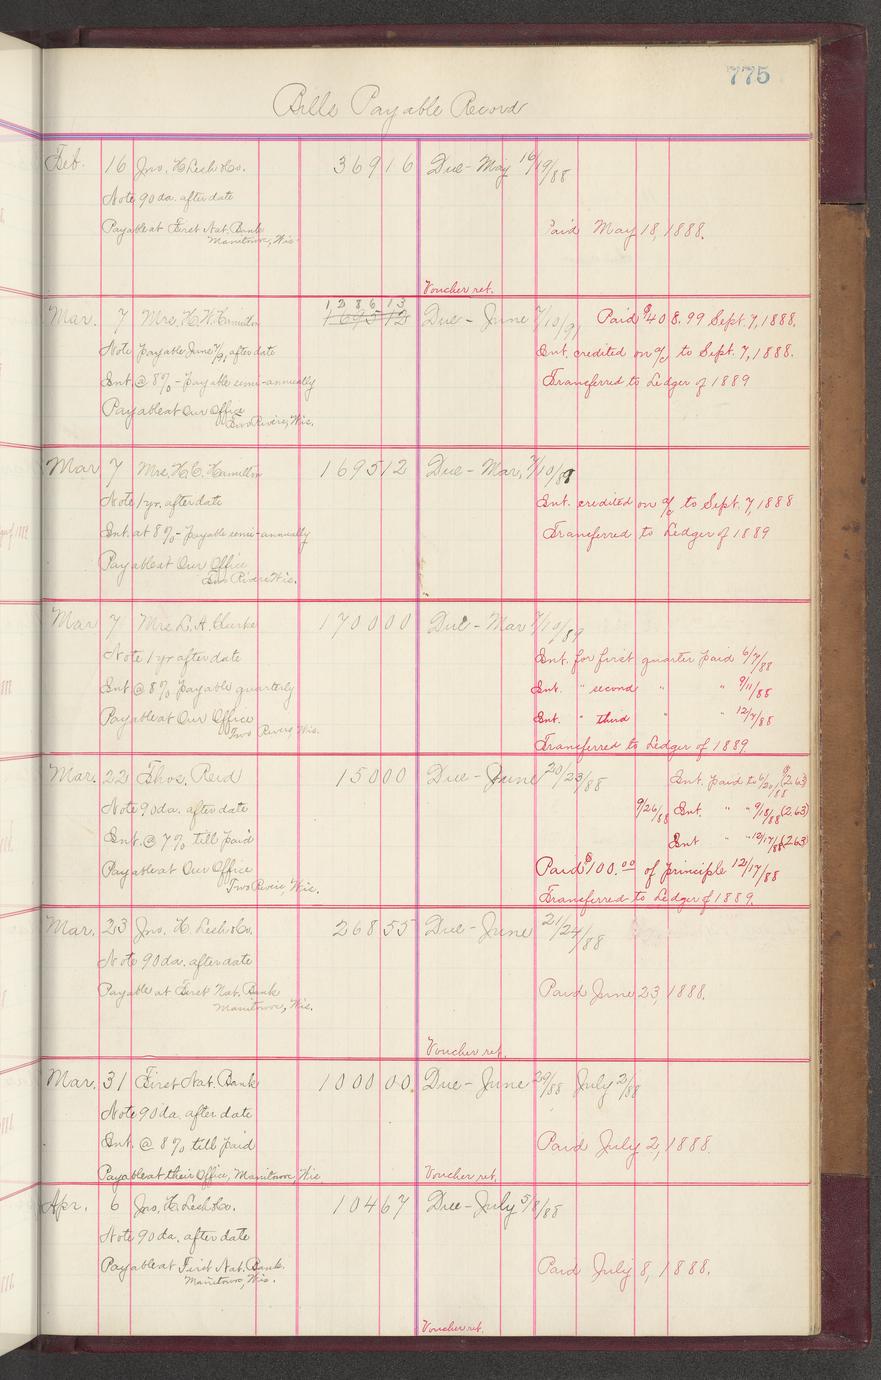 775
Bills Payable Record
Feb. 16 Jno. H. Lesh & Co. 369 16 Due - May 16/19/88
Note 90 da. after date
Payable at First Nat. Bank Paid May 18, 1888.
Manitowoc, Wis.
Voucher ret.
1286 13
Mar. 7 Mrs. H. C. Hamilton 1695 12 Due - June 7/10/91 Paid $408.99 Sept. 7, 1888.
Note Payable June 7/91 after date Int. credited on a/c to Sept. 7, 1888.
Int. @ 8% - Payable semi-annually Transferred to Ledger of 1889
Payable at Our Office
Two Rivers, Wis.
Mar 7 Mrs. H. C. Hamilton 1695 12 Due - Mar. 7/10/89
Note 1 yr. after date Int. credited on a/c to Sept. 7, 1888
Int. at 8% - Payable semi-annually Transferred to Ledger of 1889
Payable at Our Office
Two Rivers Wis.
Mar 7 Mrs L. A. Clarke 1700 00 Due - Mar 7/10/89
Note 1 yr after date Int. for first quarter paid 6/7/88
Int @ 8% Payable quarterly Int. " second " " 9/11/88
Payable at Our Office Int. " third " " 12/7/88
Two Rivers Wis.
Transferred to Ledger of 1889.
Mar. 22 Thos. Reid 150 00 Due - June 20/23/88 Int. paid to 6/20/88 ($2.63)
Note 90 da. after date 9/26/88 Int. " " 9/18/88 (2.63)
Int. @ 7% till paid Int " " 12/17/88 (2.63)
Payable at Our Office Paid $100.00 of principle 12/17/88
Two Rivers, Wis.
Transferred to Ledger of 1889.
Mar. 23 Jno. H. Lesh & Co. 268 55 Due - June 21/24/88
Note 90 da. after date
Payable at First Nat. Bank Paid June 23, 1888.
Manitowoc, Wis.
Voucher ret.
Mar. 31 First Nat. Bank 1000 00 Due - June 29/88 July 2/88
Note 90 da. after date
Int. @ 8% till paid Paid July 2, 1888.
Payable at their Office, Manitowoc, Wis. Voucher ret.
Apr. 6 Jno. H. Lesh & Co. 104 67 Due - July 5/8/88
Note 90 da. after date
Payable at First Nat. Bank. Paid July 8, 1888.
Manitowoc, Wis.
Voucher ret.